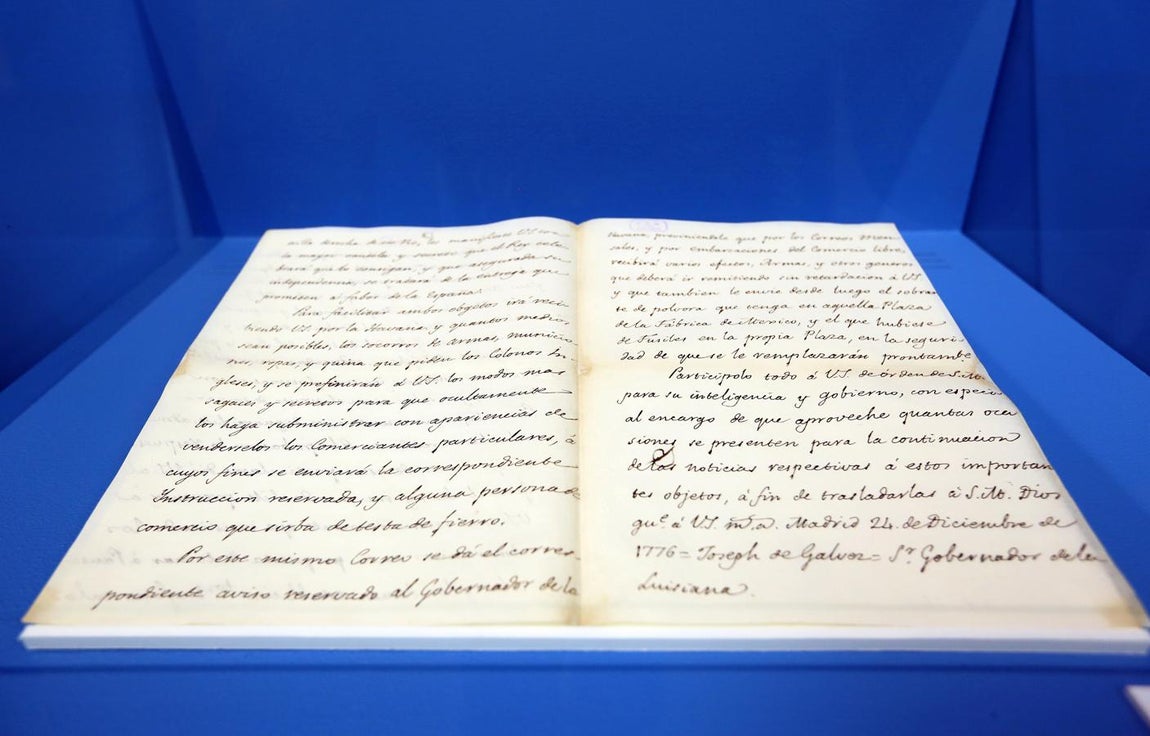 la mayor cautela y secreto que el Rey cele-
brará que lo consigan, y que asegurada su
independencia, se tratará de la entrega que
prometen á fabor de la España.
Para facilitar ambos objetos irá reci-
biendo VS. por la Havana, y quantos medios
sean posibles, los socorros de armas, municio-
nes, ropas, y quina que piden los Colonos In-
gleses, y se prefinirán á VS. los modos mas
sagaces y secretos para que ocultamente
los haga subministrar con apariencias de
venderselos los Comerciantes particulares, á
cuyos fines se enviará la correspondiente
Instruccion reservada, y alguna persona de
comercio que sirba de testa de fierro.
Por este mismo Correo se dá el corres-
pondiente aviso reservado al Gobernador de la
Havana, previniendole que por los Correos Men-
sales, y por embarcaciones del Comercio libre,
recibirá varios efectos, Armas, y otros generos
que deberá ir remitiendo sin retardacion á VS.
y que tambien le envie desde luego el sobran-
te de polvora que tenga en aquella Plaza
de la Fábrica de Mexico, y el que hubiese
de Fusiles en la propia Plaza, en la seguri-
dad de que se le remplazarán prontamte
Participolo todo á VS. de órden de S.M.
para su inteligencia y gobierno, con especial
al encargo de que aproveche quantas oca-
siones se presenten para la continuacion
de las noticias respectivas á estos importan-
tes objetos, á fin de trasladarlas á S.M. Dios
gue. á VS. ms. as. Madrid 24. de Diciembre de
1776 = Joseph de Galvez = Sr. Gobernador de la
Luisiana.